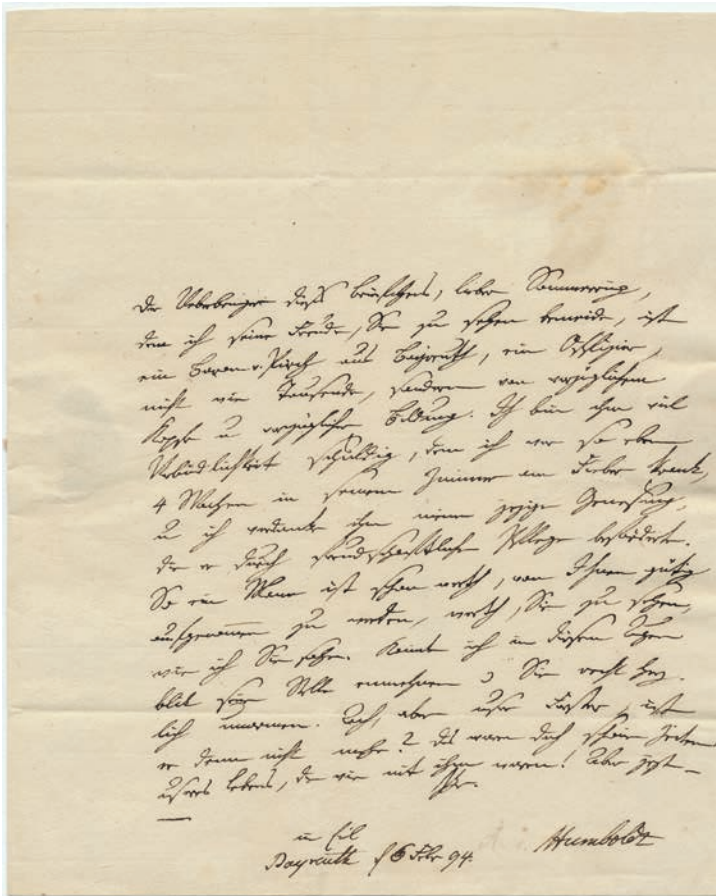 Der Ueberbringer dieses Briefchens, lieber Sömmerring,
dem ich seine Freude, Sie zu sehen beneide, ist
ein Baron v. Pirch aus Baireuth, ein Offizier,
nicht wie Tausende, sondern von vorzüglichem
Kopfe u vorzüglicher Bildung. Ich bin ihm viel
Verbindlichkeit schuldig, denn ich war so eben
4 Wochen in seinem Zimmer am Fieber krank,
u ich verdanke ihm meine jezige Genesung,
die er durch freundschaftliche Pflege beförderte.
So ein Mann ist schon werth, von Ihnen gütig
aufgenommen zu werden, werth, Sie zu sehen,
wie ich Sie sahe. Könnte ich in diesen Tagen
seine Stelle einnehmen Sie recht herz-
lich umarmen. Ach, aber unser Forster, ist
er denn nicht mehr? Das waren doch schöne Zeiten
unsres Lebens, da wir mit ihm waren! Aber jezt —
Ihr
in Eil
Bayreuth d 6 Febr 94. Humboldt